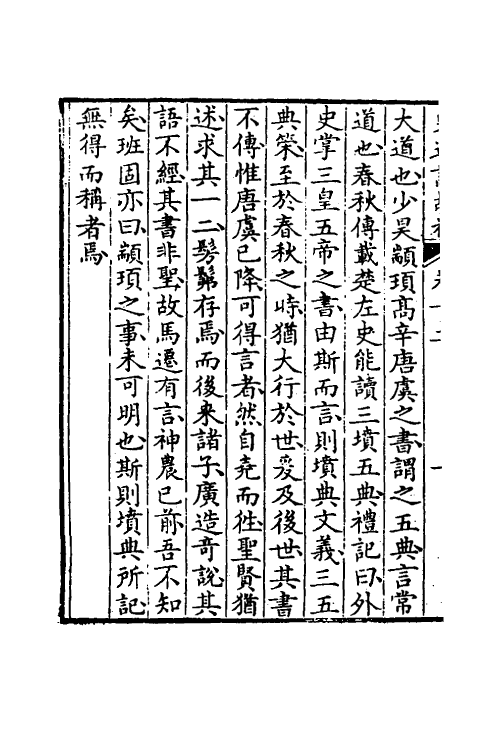 大道也少昊顓頊髙辛唐虞之書謂之五典言常
道也春秋傳載楚左史能讀三墳五典禮記曰外
史掌三皇五帝之書由斯而言則墳典文義三五
典策至於春秋之時猶大行於世爰及後世其書
不傳惟唐虞已降可得言者然自堯而往聖賢猶
述求其一二髣髴存焉而後来諸子廣造奇說其
語不經其書非聖故馬遷有言神農已前吾不知
矣班固亦曰顓頊之事未可明也斯則墳典所記
無得而稱者焉